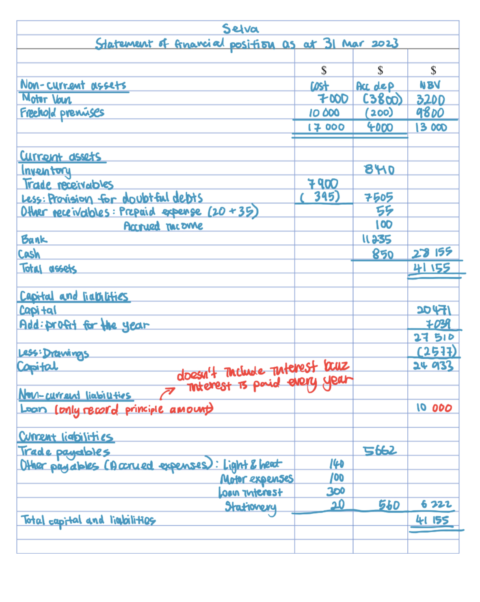 Selva
Statement of financial position as at 31 Mar 2023
$ $ $
Non-current assets Cost Acc dep NBV
Motor Van 7000 (3800) 3200
Freehold premises 10 000 (200) 9800
17 000 4000 13 000
Current assets
Inventory 8410
Trade receivables 7900
Less: Provision for doubtful debts (395) 7505
Other receivables: Prepaid expense (20 + 35) 55
Accrued income 100
Bank 11235
Cash 850 28 155
Total assets 41 155
Capital and liabilities
Capital 20471
Add: profit for the year 7039
27 510
Less: Drawings (2577)
Capital 24 933
doesn't include interest bcuz
interest is paid every year
Non-current liabilities
Loan (only record principle amount) 10 000
Current liabilities
Trade payables 5662
Other payables (Accrued expenses): Light & heat 140
Motor expenses 100
Loan interest 300
Stationery 20 560 6 222
Total capital and liabilities 41 155